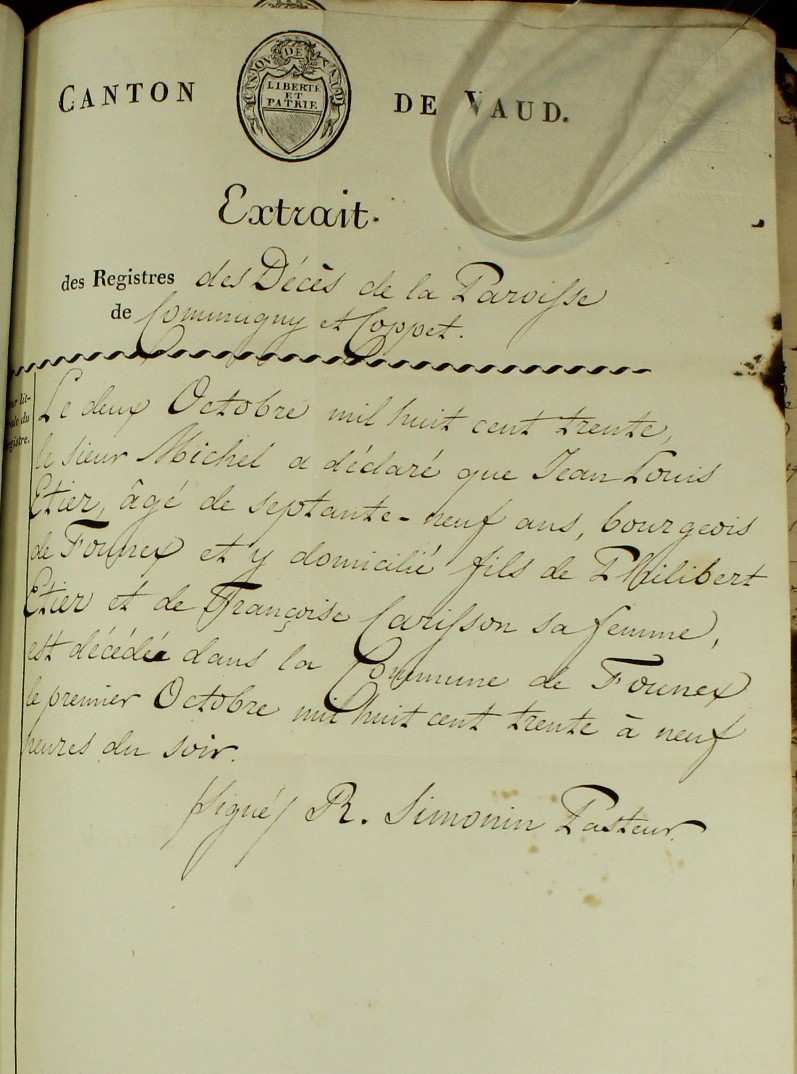 CANTON DE VAUD.
CANTON DE VAUD
LIBERTÉ
ET
PATRIE
Extrait.
des Registres des Décès de la Paroisse
de Commugny et Coppet.
Le deux Octobre mil huit cent trente,
le sieur Michel a déclaré que Jean Louis
Etier, âgé de septante-neuf ans, bourgeois
de Founex et y domicilié fils de Philibert
Etier et de Françoise Carisson sa femme,
est décédée dans la Commune de Founex
le premier Octobre mil huit cent trente à neuf
heures du soir.
/signé/ R. Simonin Pasteur.